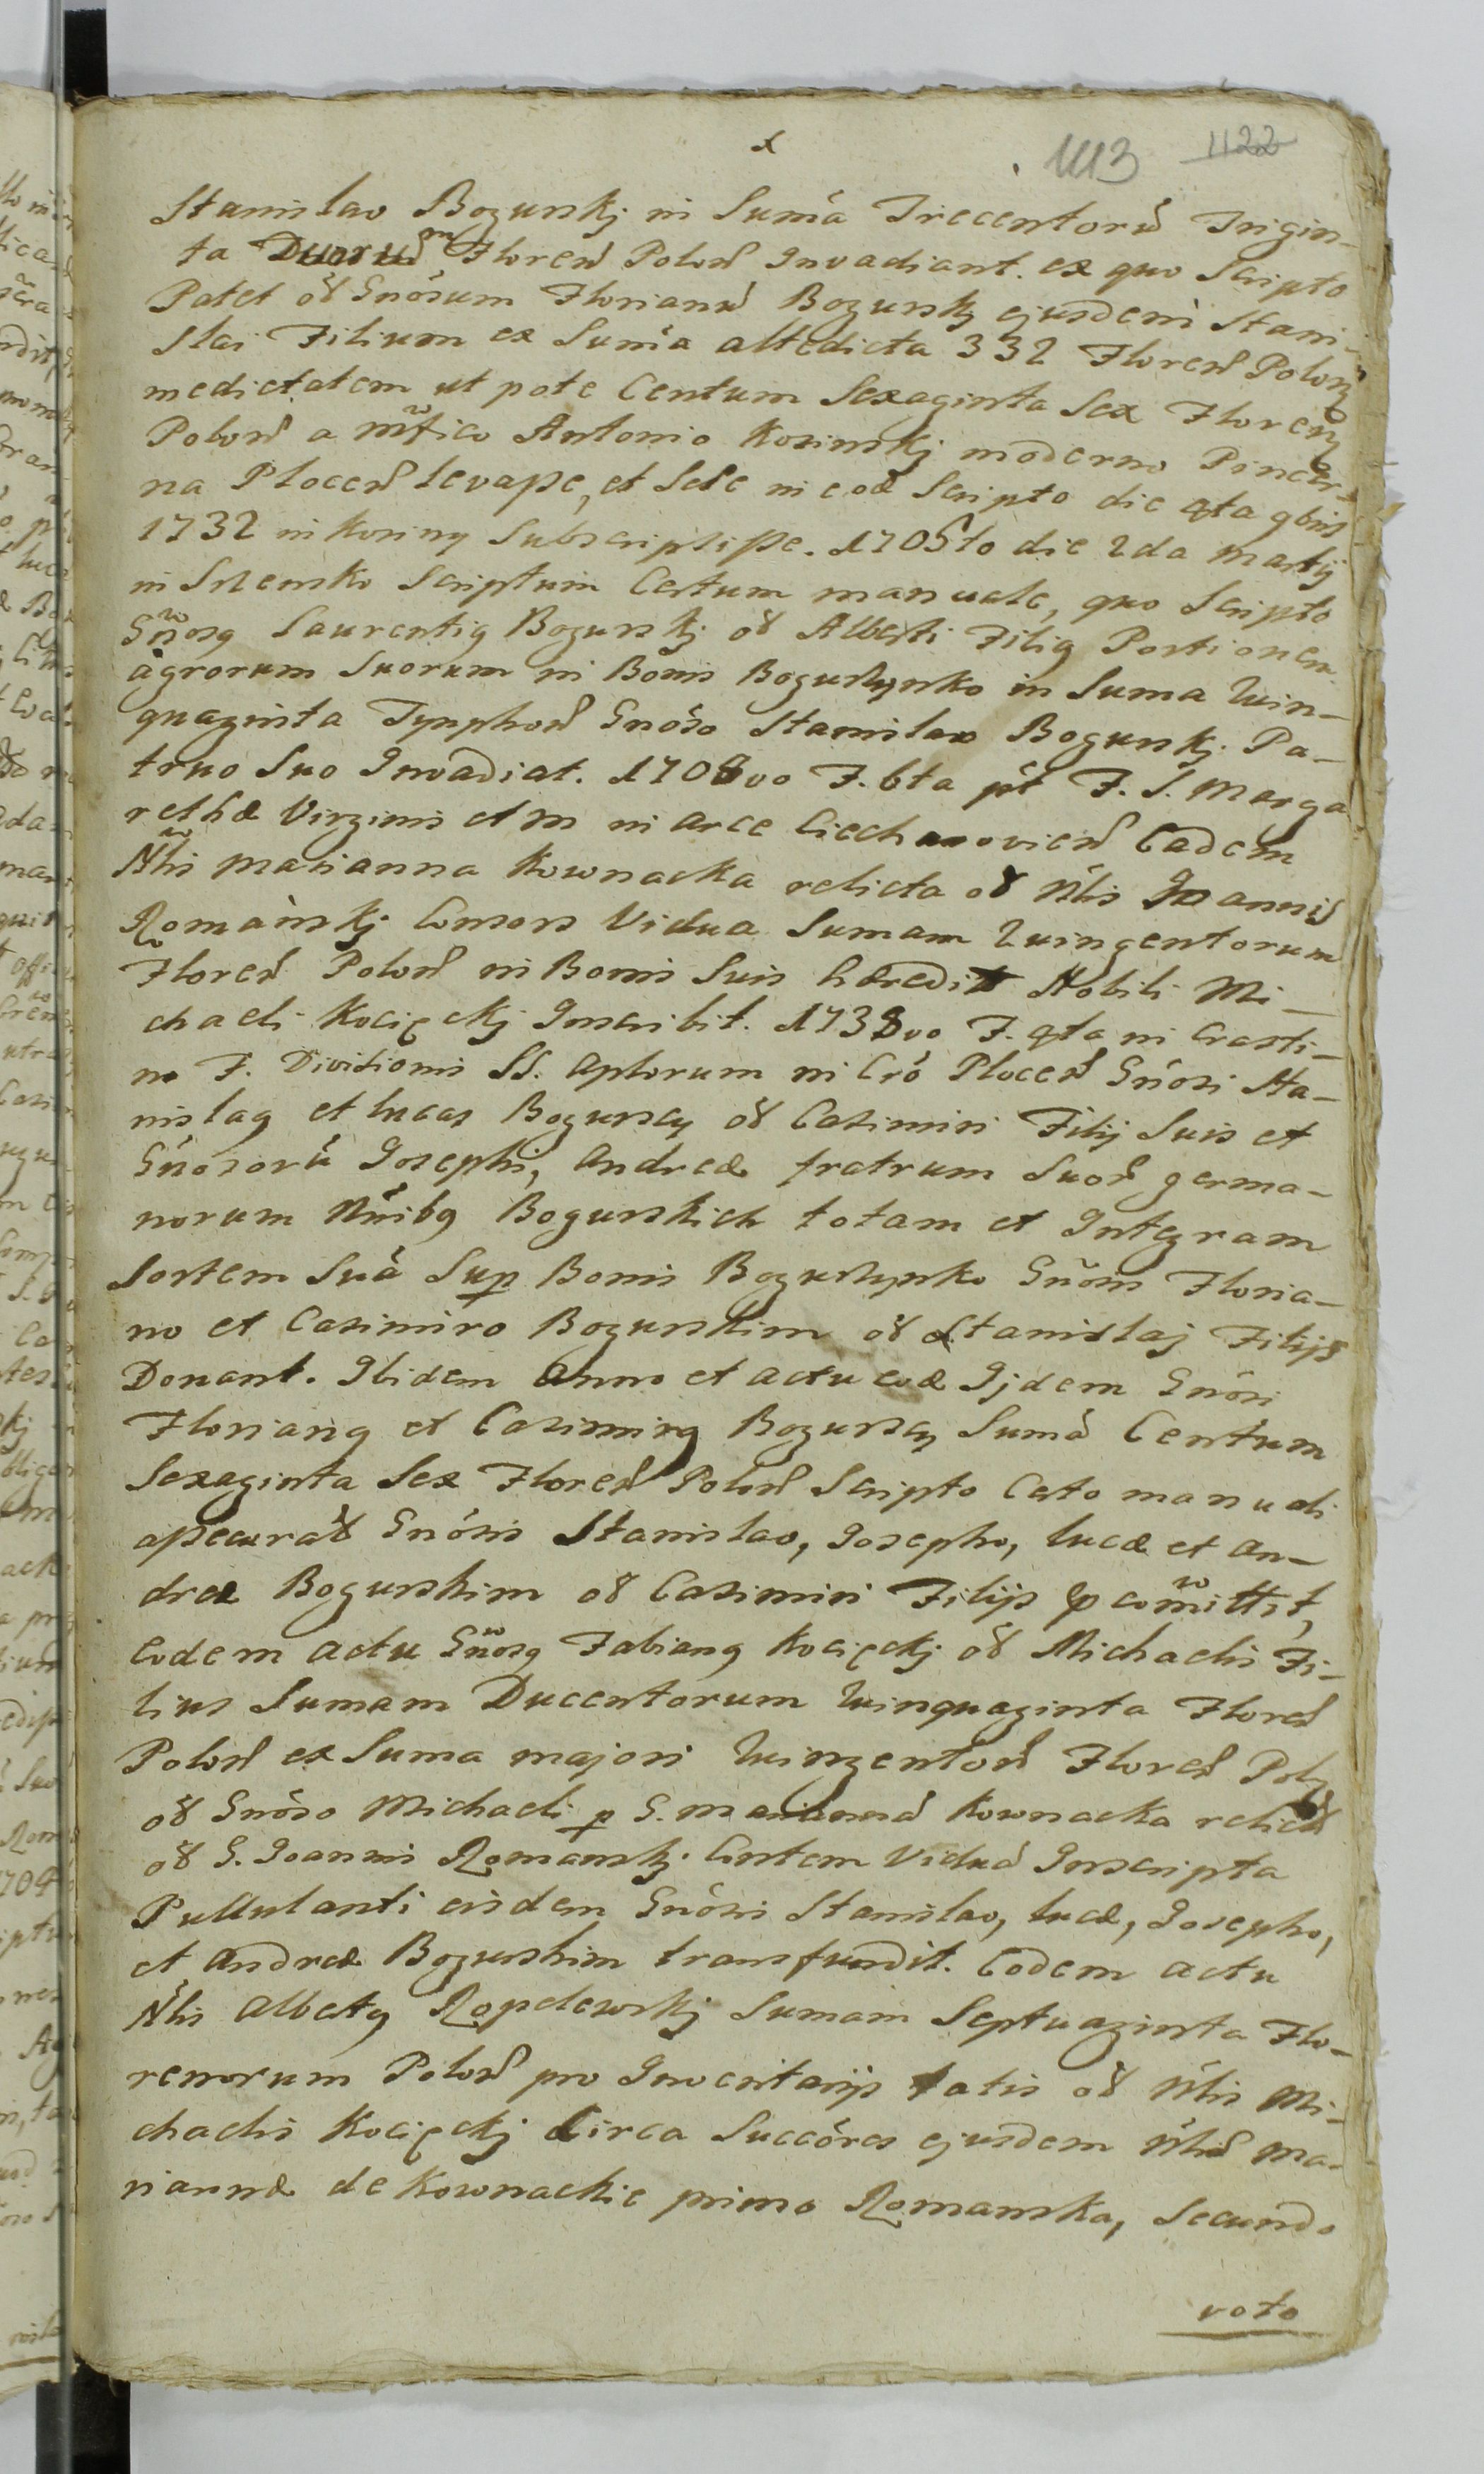 x
1113 1122
Stanislao Bogurskj in Suma Trecentoru Trigin-
ta Duorum Floren Polon Invadiant. ex quo Scripto
Patet oł Gnosum Florianu Bogurskj ejusdem Stani-
slai Filium ex Suma altedicta 332 Floren Polon
medietatem ut pote Centum Sexaginta Sex Floren
Polon a Mfico Antonio Kosinskj moderno Pincer-
na Plocen levasse, et Sese in eod Scripto die 4ta 9bris
1732 in Kosiny Subscripsisse. 1705to die 2da Martij
in Srzensko Scriptum Certum manuale, quo Scripto
Gnosq Laurentiq Bogurskj oł Alberti Filiq Portionem
agrorum Suorum in Bonis Boguszynko in Suma Quin-
quaginta Tynphon Gnoso Stanislao Bogurskj Pa-
truo Suo Invadiat. 1708vo F. 6ta pt F. S. Marga
rethæ Virginis et M in Arce Ciechanovien Eadem
Nlis Marianna Kownacka relicta oł Nlis Joannis
Romanskj Consors Vidua Sumam Quingentorum
Floren Polon in Bonis Suis hæredit Nobili Mi-
chaeli Kocięckj Inscribit. 1738vo F. 4ta in Crasti-
no F. Divisionis SS. Aplorum in Cró Plocen Gnosi Sta-
nislaq et Lucas Bogurscy oł Casimiri Filij Suis et
Gnosorú Josephi, Andreæ fratrum Suor germa-
norum Nnibq Bogurskich totam et Integram
Sortem Suá Sup Bonis Boguszynko Gnosis Floria-
no et Casimiro Bogurskim oł Stanislaj Filijs
Donant. Ibidem Anno et actu eod Ijdem Gnosi
Florianq et Casimirq Bogurscy Sumá Centum
Sexaginta Sex Floren Polon Scripto Certo manuali
assecurat Gnosis Stanislao, Josepho, Lucæ et An-
dreæ Bogurskim oł Casimiri Filijs p comittit,
Eodem actu Gnosq Fabianq Kocięckj oł Michaelis Fi-
lius Sumam Ducentorum Quinquaginta Floren
Polon ex Suma majori Quingenton Floren Pol
oł Gnoso Michaeli p G. Marianná Kownacka relict
oł G. Joannis Romanskj Contem Viduá Inscripta
Pullulanti eisdem Gnosis Stanislao, Lucæ, Josepho,
et Andreæ Bogurskim transfundit. Eodem actu
Nlis Albertq Ropelewskj Sumam Septuaginta Flo-
renorum Polon pro Inventarijs Satis oł Nlis Mi-
chaelis Kocięckj Circa Succóres ejusdem Nlis Ma-
riannæ de Kownackie primo Romanska, Secundo
voto